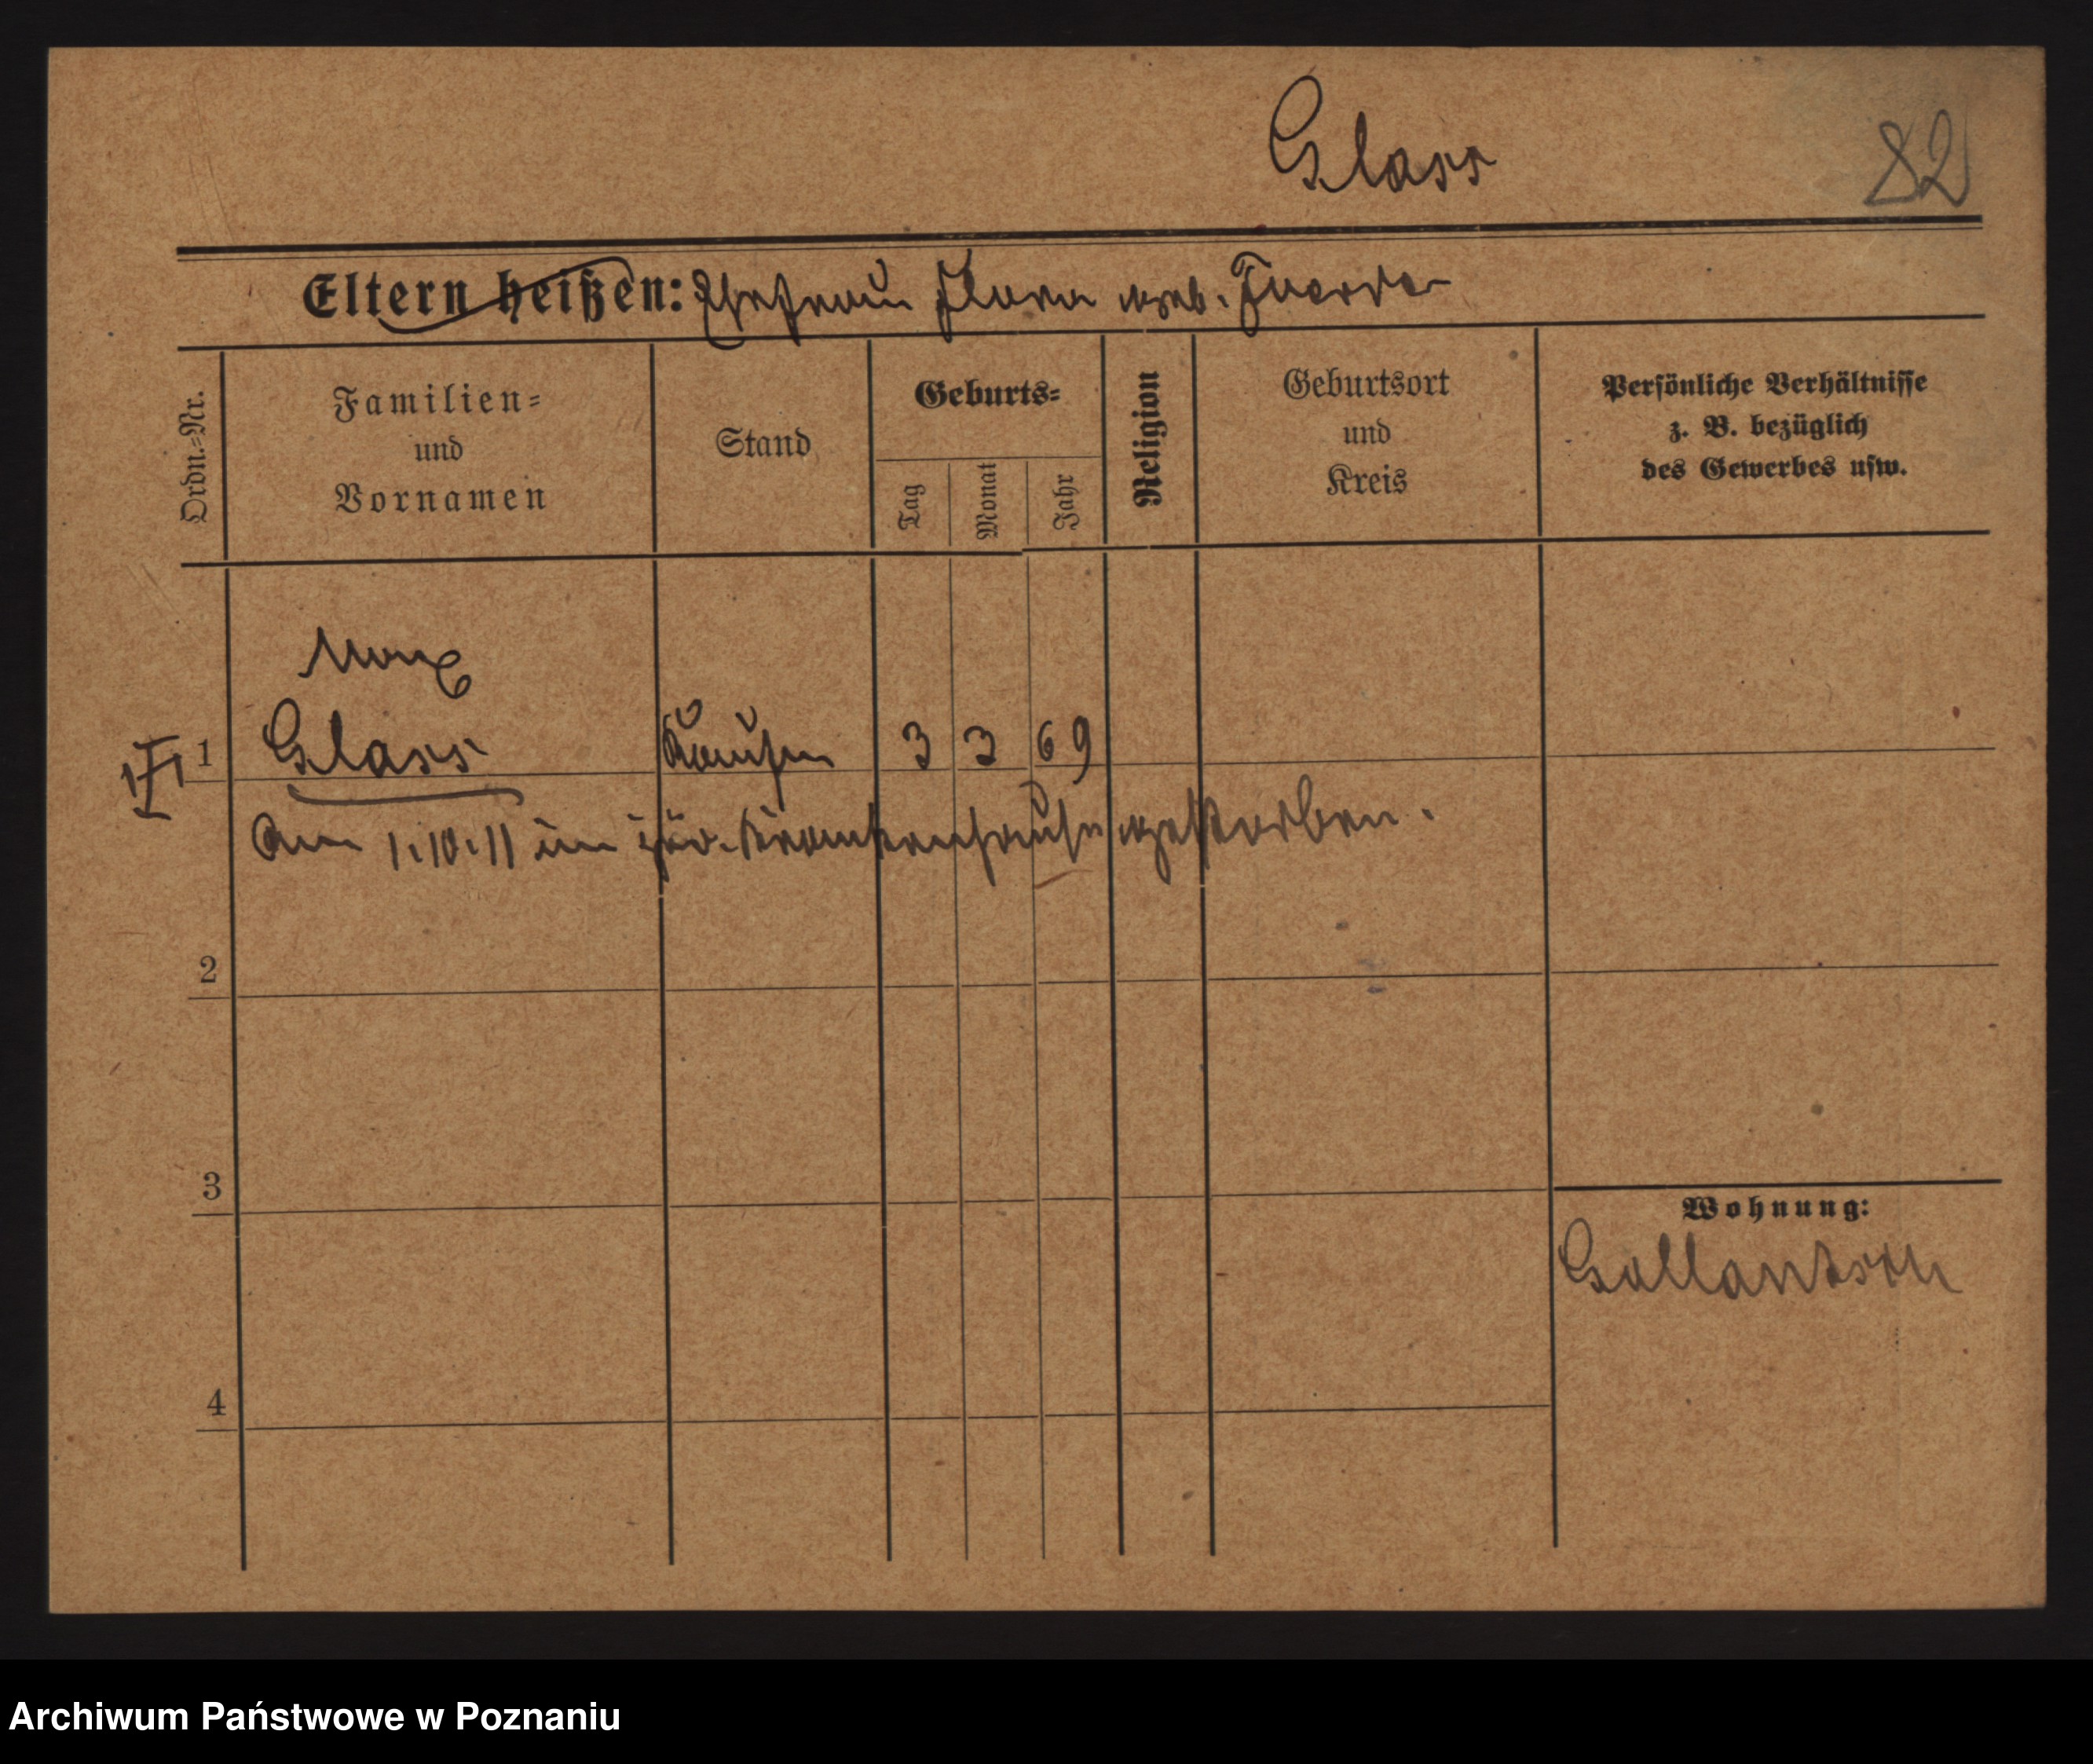 Glass
82
Eltern heißen: Ehefrau Flora geb.
Ordn.=Nr.
Familien=
und
Vornamen
Stand
Geburts=
Tag
Monat
Jahr
Religion
Geburtsort
und
Kreis
Persönliche Verhältnisse
z. B. bezüglich
des Gewerbes usw.
Max
1 Glass Kaufm 3 3 69
Am 1.10.11 im jüd. Krankenhause gestorben.
2
3
Wohnung:
Gollantsch
4
Archiwum Państwowe w Poznaniu